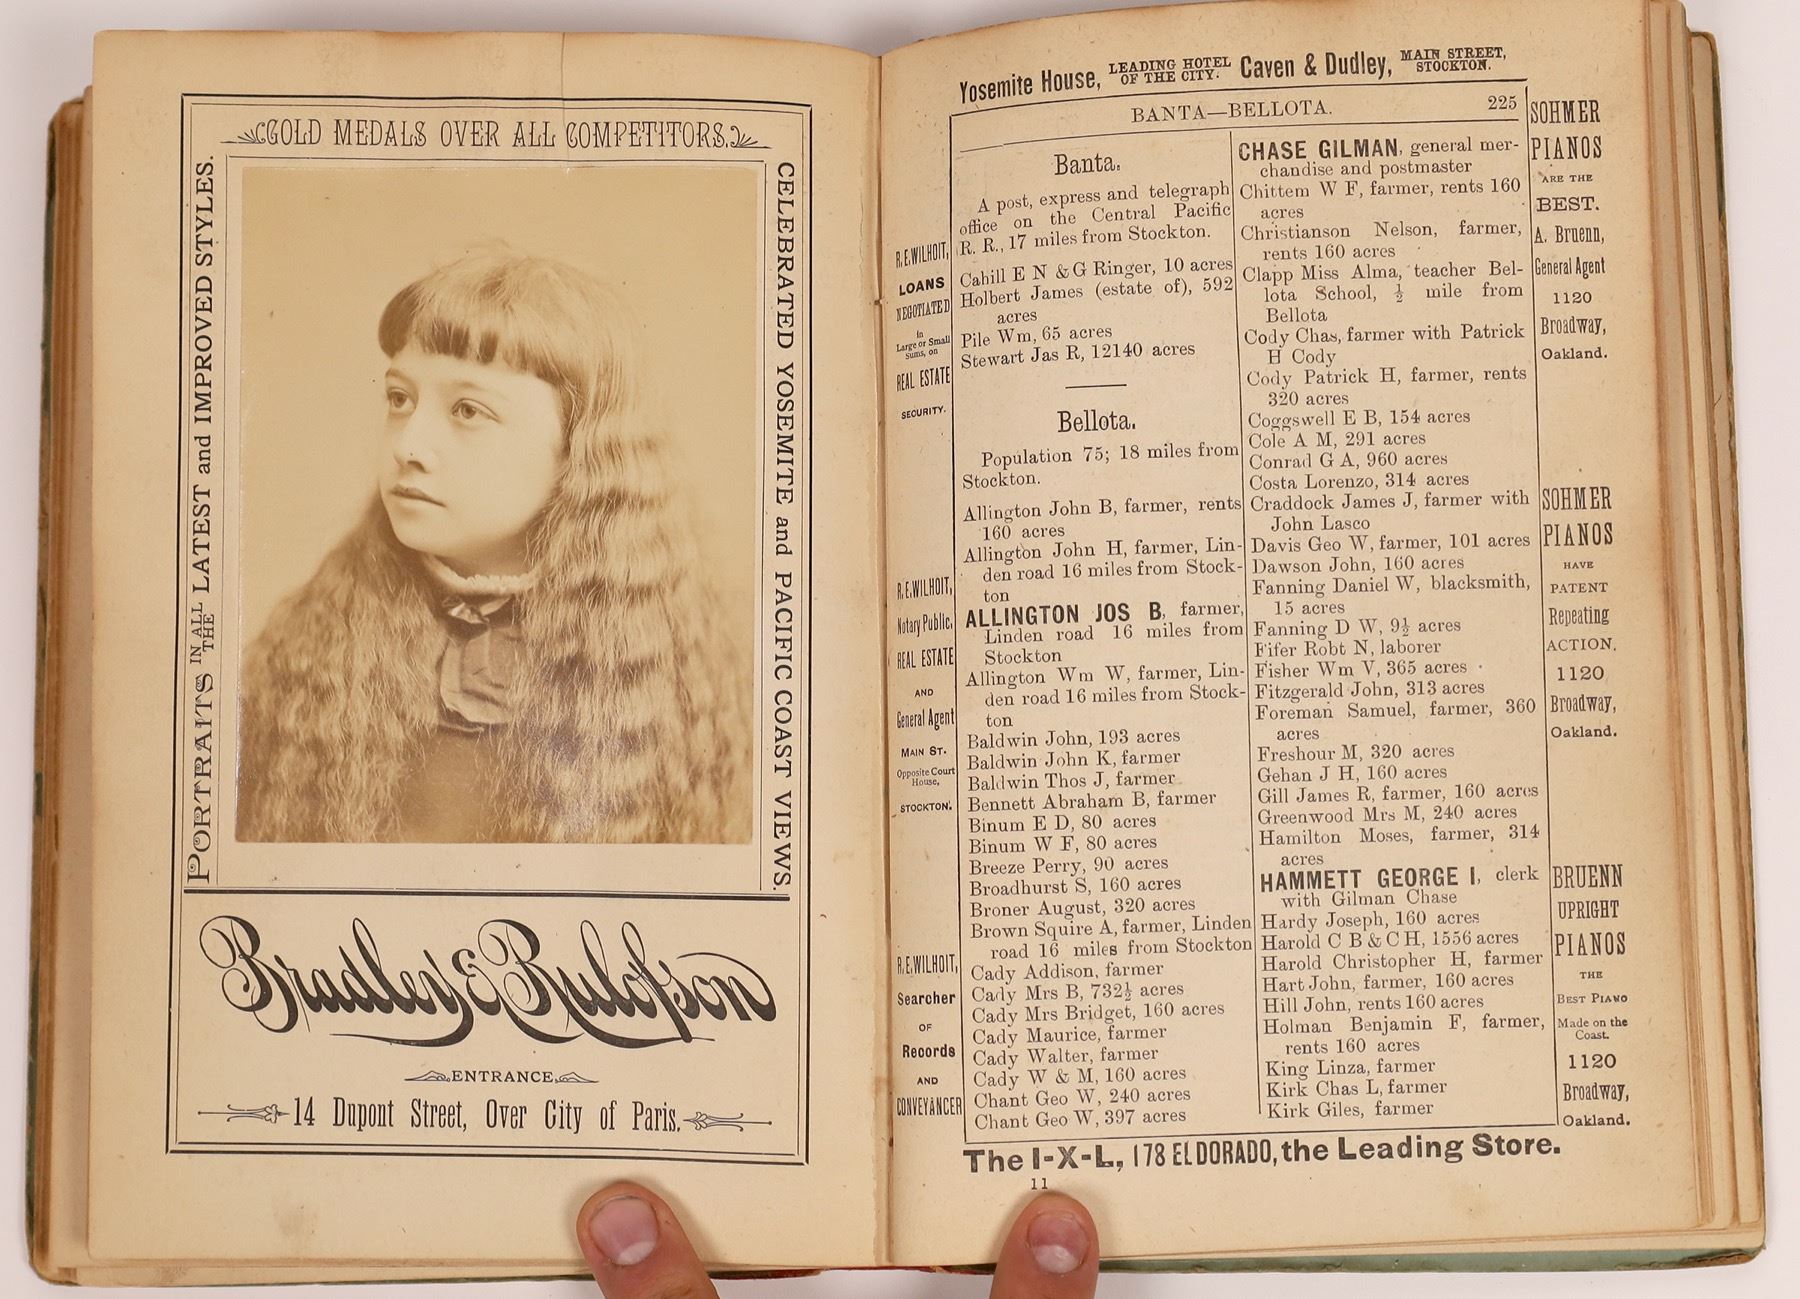 GOLD MEDALS OVER ALL COMPETITORS.
PORTRAITS IN ALL THE LATEST and IMPROVED STYLES.
CELEBRATED YOSEMITE and PACIFIC COAST VIEWS.
Bradley & Rulofson
ENTRANCE
14 Dupont Street, Over City of Paris.
Yosemite House, LEADING HOTEL OF THE CITY. Caven & Dudley, MAIN STREET, STOCKTON.
BANTA—BELLOTA. 225
R. E. WILHOIT,
LOANS
NEGOTIATED
in
Large or Small
sums, on
REAL ESTATE
SECURITY.
R. E. WILHOIT,
Notary Public,
REAL ESTATE
AND
General Agent
MAIN ST.
Opposite Court
House,
STOCKTON.
R. E. WILHOIT,
Searcher
OF
Records
AND
CONVEYANCER
Banta.
A post, express and telegraph
office on the Central Pacific
R. R., 17 miles from Stockton.
Cahill E N & G Ringer, 10 acres
Holbert James (estate of), 592
acres
Pile Wm, 65 acres
Stewart Jas R, 12140 acres
Bellota.
Population 75; 18 miles from
Stockton.
Allington John B, farmer, rents
160 acres
Allington John H, farmer, Lin-
den road 16 miles from Stock-
ton
ALLINGTON JOS B, farmer,
Linden road 16 miles from
Stockton
Allington Wm W, farmer, Lin-
den road 16 miles from Stock-
ton
Baldwin John, 193 acres
Baldwin John K, farmer
Baldwin Thos J, farmer
Bennett Abraham B, farmer
Binum E D, 80 acres
Binum W F, 80 acres
Breeze Perry, 90 acres
Broadhurst S, 160 acres
Broner August, 320 acres
Brown Squire A, farmer, Linden
road 16 miles from Stockton
Cady Addison, farmer
Cady Mrs B, 732½ acres
Cady Mrs Bridget, 160 acres
Cady Maurice, farmer
Cady Walter, farmer
Cady W & M, 160 acres
Chant Geo W, 240 acres
Chant Geo W, 397 acres
CHASE GILMAN, general mer-
chandise and postmaster
Chittem W F, farmer, rents 160
acres
Christianson Nelson, farmer,
rents 160 acres
Clapp Miss Alma, teacher Bel-
lota School, ½ mile from
Bellota
Cody Chas, farmer with Patrick
H Cody
Cody Patrick H, farmer, rents
320 acres
Coggswell E B, 154 acres
Cole A M, 291 acres
Conrad G A, 960 acres
Costa Lorenzo, 314 acres
Craddock James J, farmer with
John Lasco
Davis Geo W, farmer, 101 acres
Dawson John, 160 acres
Fanning Daniel W, blacksmith,
15 acres
Fanning D W, 9½ acres
Fifer Robt N, laborer
Fisher Wm V, 365 acres
Fitzgerald John, 313 acres
Foreman Samuel, farmer, 360
acres
Freshour M, 320 acres
Gehan J H, 160 acres
Gill James R, farmer, 160 acres
Greenwood Mrs M, 240 acres
Hamilton Moses, farmer, 314
acres
HAMMETT GEORGE I, clerk
with Gilman Chase
Hardy Joseph, 160 acres
Harold C B & C H, 1556 acres
Harold Christopher H, farmer
Hart John, farmer, 160 acres
Hill John, rents 160 acres
Holman Benjamin F, farmer,
rents 160 acres
King Linza, farmer
Kirk Chas L, farmer
Kirk Giles, farmer
SOHMER
PIANOS
ARE THE
BEST.
A. Bruenn,
General Agent
1120
Broadway,
Oakland.
SOHMER
PIANOS
HAVE
PATENT
Repeating
ACTION.
1120
Broadway,
Oakland.
BRUENN
UPRIGHT
PIANOS
THE
BEST PIANO
Made on the
Coast.
1120
Broadway,
Oakland.
The I-X-L, 178 EL DORADO, the Leading Store.
11